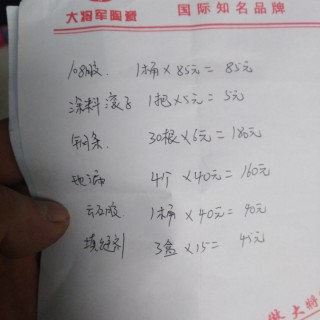 大将军陶瓷 国际知名品牌
108胶. 1桶×85元=85元
涂料滚子 1把×5元=5元
铜条 30根×6元=180元
地漏 4个×40元=160元
云石胶. 1桶×40元=40元
填缝剂 3盒×15=45元
大将